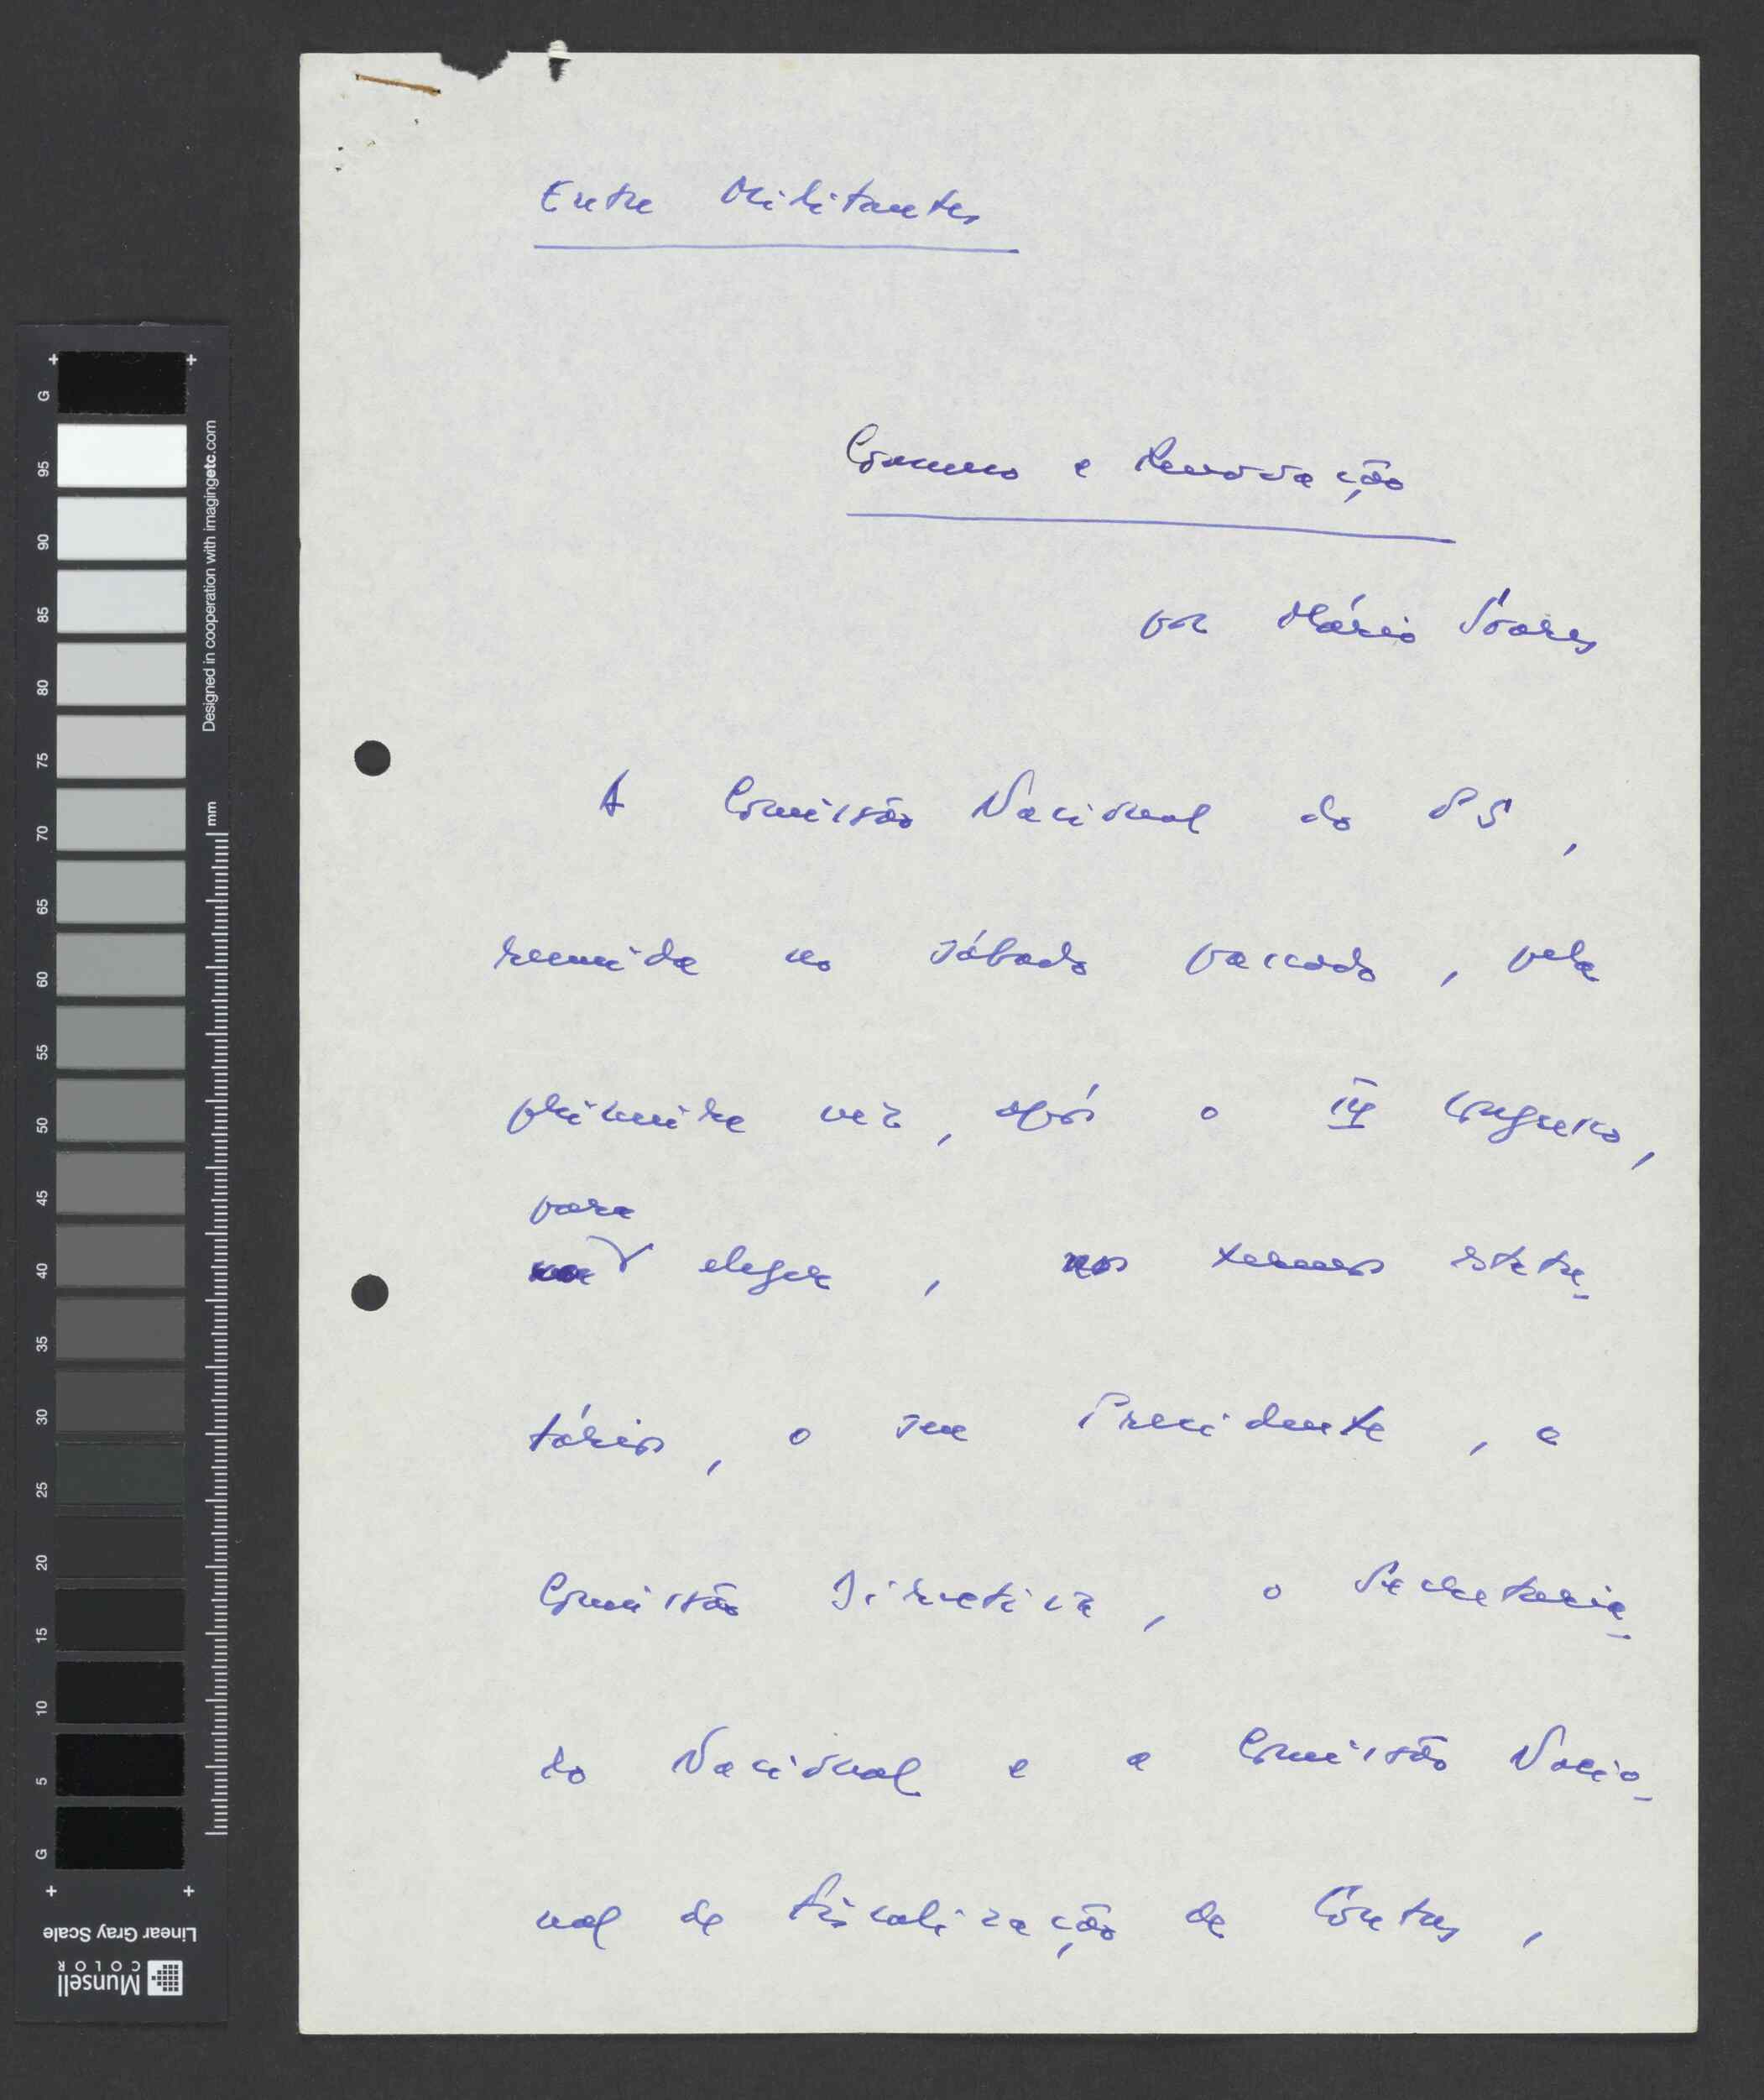 Entre Militantes
e Renovação
por Mário Soares
A Comissão Nacional do PS,
reunida no sábado passado, pela
primeira vez, após o IV Congresso,
para
eleger, nos termos estatu-
tários, o seu Presidente, a
Comissão Directiva, o Secretaria-
do Nacional e a Comissão Nacio-
nal de Fiscalização de Contas,
G
95
90
85
80
75
70
65
60
55
50
45
40
35
30
25
20
15
10
5
G
Designed in cooperation with imagingetc.com
mm
Linear Gray Scale
Munsell
COLOR